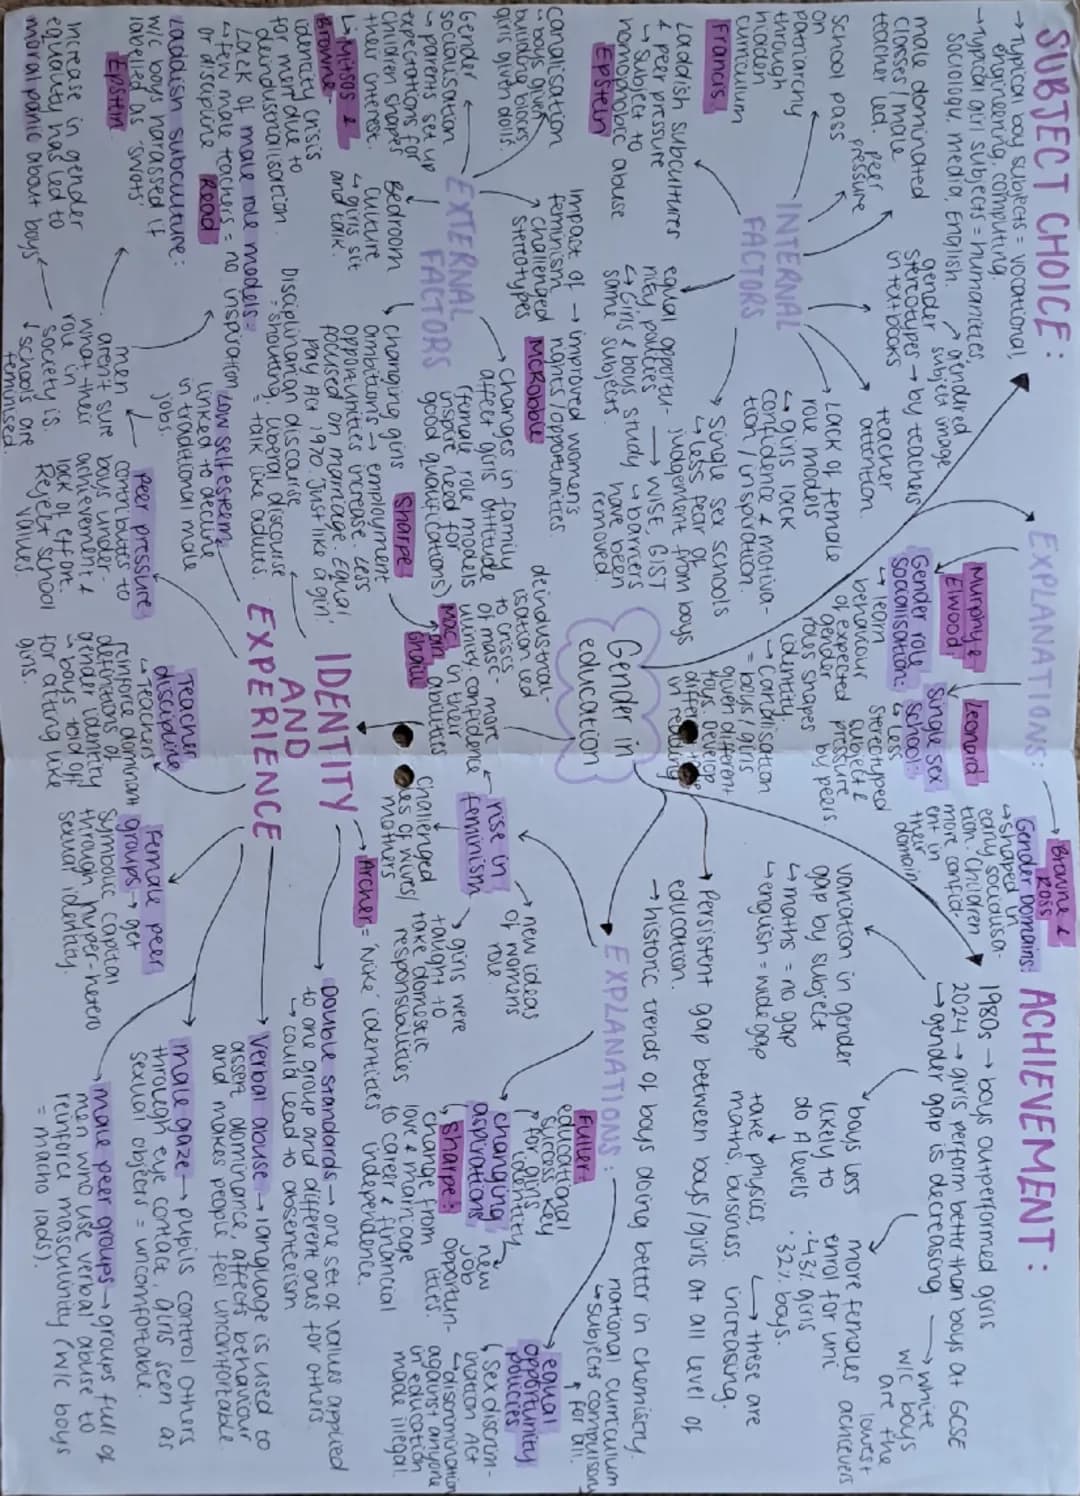 SUBJECT CHOICE:
→ Typical boy subjects = vocational,
engineering, computing.
→ typical girl subjects = humanities,
sociology, media, English.
male dominated
classes / male
teacher led.
peer
pressure
gendered
subject image
gender
stereotypes → by teachers
in textbooks
teacher
attention.
School pass
on
patriarchy
through
hidden
curriculum
INTERNAL
FACTORS
Lack of female
role models
↳ girls lack
confidence & motiva-
tion / inspiration.
Francis
Laddish subcultures
& peer pressure
↳ subject to
homophobic abuse
Epstein
equal opportu-
nity policies
↳ Girls & boys study
same subjects
→ WISE, GIST
↳ barriers
have been
removed.
Single sex schools
↳ less fear of
judgement from boys
EXPLANATIONS:
Murphy &
Elwood
Gender role
socialisation:
↳ learn
behaviour
of expected
gender
roles shapes
identity.
→ canalisation
= boys / girls
given different
toys. Develop
in reading
Leonard
Single sex
school:
↳ less
stereotyped
subject &
pressure
by peers
Browne &
Ross
Gender Domains:
↳ shaped in
early socialisa-
tion. Children
more confid-
ent in
their
domain
canalisation
↳ boys given
building blocks
girls given dolls
Gender
socialisation
→ parents set up
expectations for
children shapes
their interest.
EXTERNAL
FACTORS
Impact of
feminism
challenged
stereotypes
→ improved women's
rights / opportunities
McRobbie
Changes in family
affect girls attitude
(female role models
inspire need for
good qualifications)
Bedroom
culture
↳ girls sit
and talk.
changing girls
ambitions → employment
opportunities increase. Less
focused on marriage. Equal
pay Act 1970. 'Just like a girl'
Sharpe
Gender in
education
ACHIEVEMENT:
1980s → boys outperformed girls
2024 → girls perform better than boys at GCSE
→ gender gap is decreasing
→ white
w/c boys
are the
lowest
achievers
variation in gender
gap by subject
↳ maths = no gap
↳ english = wide gap
boys less
likely to
do A levels
take physics,
maths, business.
↳ these are
increasing.
more females
enrol for uni
· 43% girls
· 32% boys.
→ Persistent gap between boys / girls at all level of
education.
→ historic trends of boys doing better in chemistry.
EXPLANATIONS:
national curriculum
↳ subjects compulsory
for all.
equal
opportunity
policies
Sex discrim-
ination Act
↳ discrimination
against anyone
in education
made illegal
Fuller
educational
success key
for girls
identity
changing
aspirations
new
job
opportun-
ities.
Sharpe:
change from
love & marriage
to career & financial
independence.
rise in
feminism
→ new ideas
of womens
role
→ girls were
taught to
take domestic
responsibilities
challenged
mothers
→ more
confidence
in their
abilities
Mac an
Ghaill
deindustral-
isation led
to crisis
of mas-
culinity
IDENTITY
AND
EXPERIENCE
→ Archer = 'Nike' identities
Double standards → one set of values applied
to one group and different ones for others.
↳ could lead to absenteeism
Verbal abuse → language is used to
assert dominance, affects behaviour
and makes people feel uncomfortable.
male gaze → pupils control others
through eye contact, girls seen as
sexual objects = uncomfortable.
male peer groups → groups full of
men who use verbal abuse to
reinforce masculinity (w/c boys
= macho lads).
Female peer
groups → get
symbolic capital
through hyper-hetero
sexual identity.
Teacher
discipline
↳ Teachers
reinforce dominant
definitions of
gender identity
↳ boys told off
for acting like
girls.
Peer pressure
contributes to
boys under-
achievement &
lack of effort.
Reject school
values.
Low self esteem
linked to decline
in traditional male
jobs.
Disciplinarian discourse
= shouting, liberal discourse
= talk like adults.
Mitsos &
Browne-
identity crisis
for men due to
deindustralisation.
Lack of male role models =
↳ few male teachers = no inspiration
or discipline
Read
Laddish subculture:
w/c boys harassed if
labelled as 'swots'
Epstein
Increase in gender
equality has led to
moral panic about boys
men
arent sure
what their
role in
society is.
↓ schools are
feminised